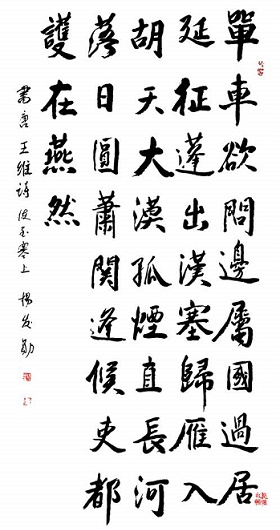 單車欲問邊屬國過居
延征蓬出漢塞歸雁入
胡天大漠孤煙直長河
落日圓蕭關逢候吏都
護在燕然
書唐王維詩使至塞上 楊